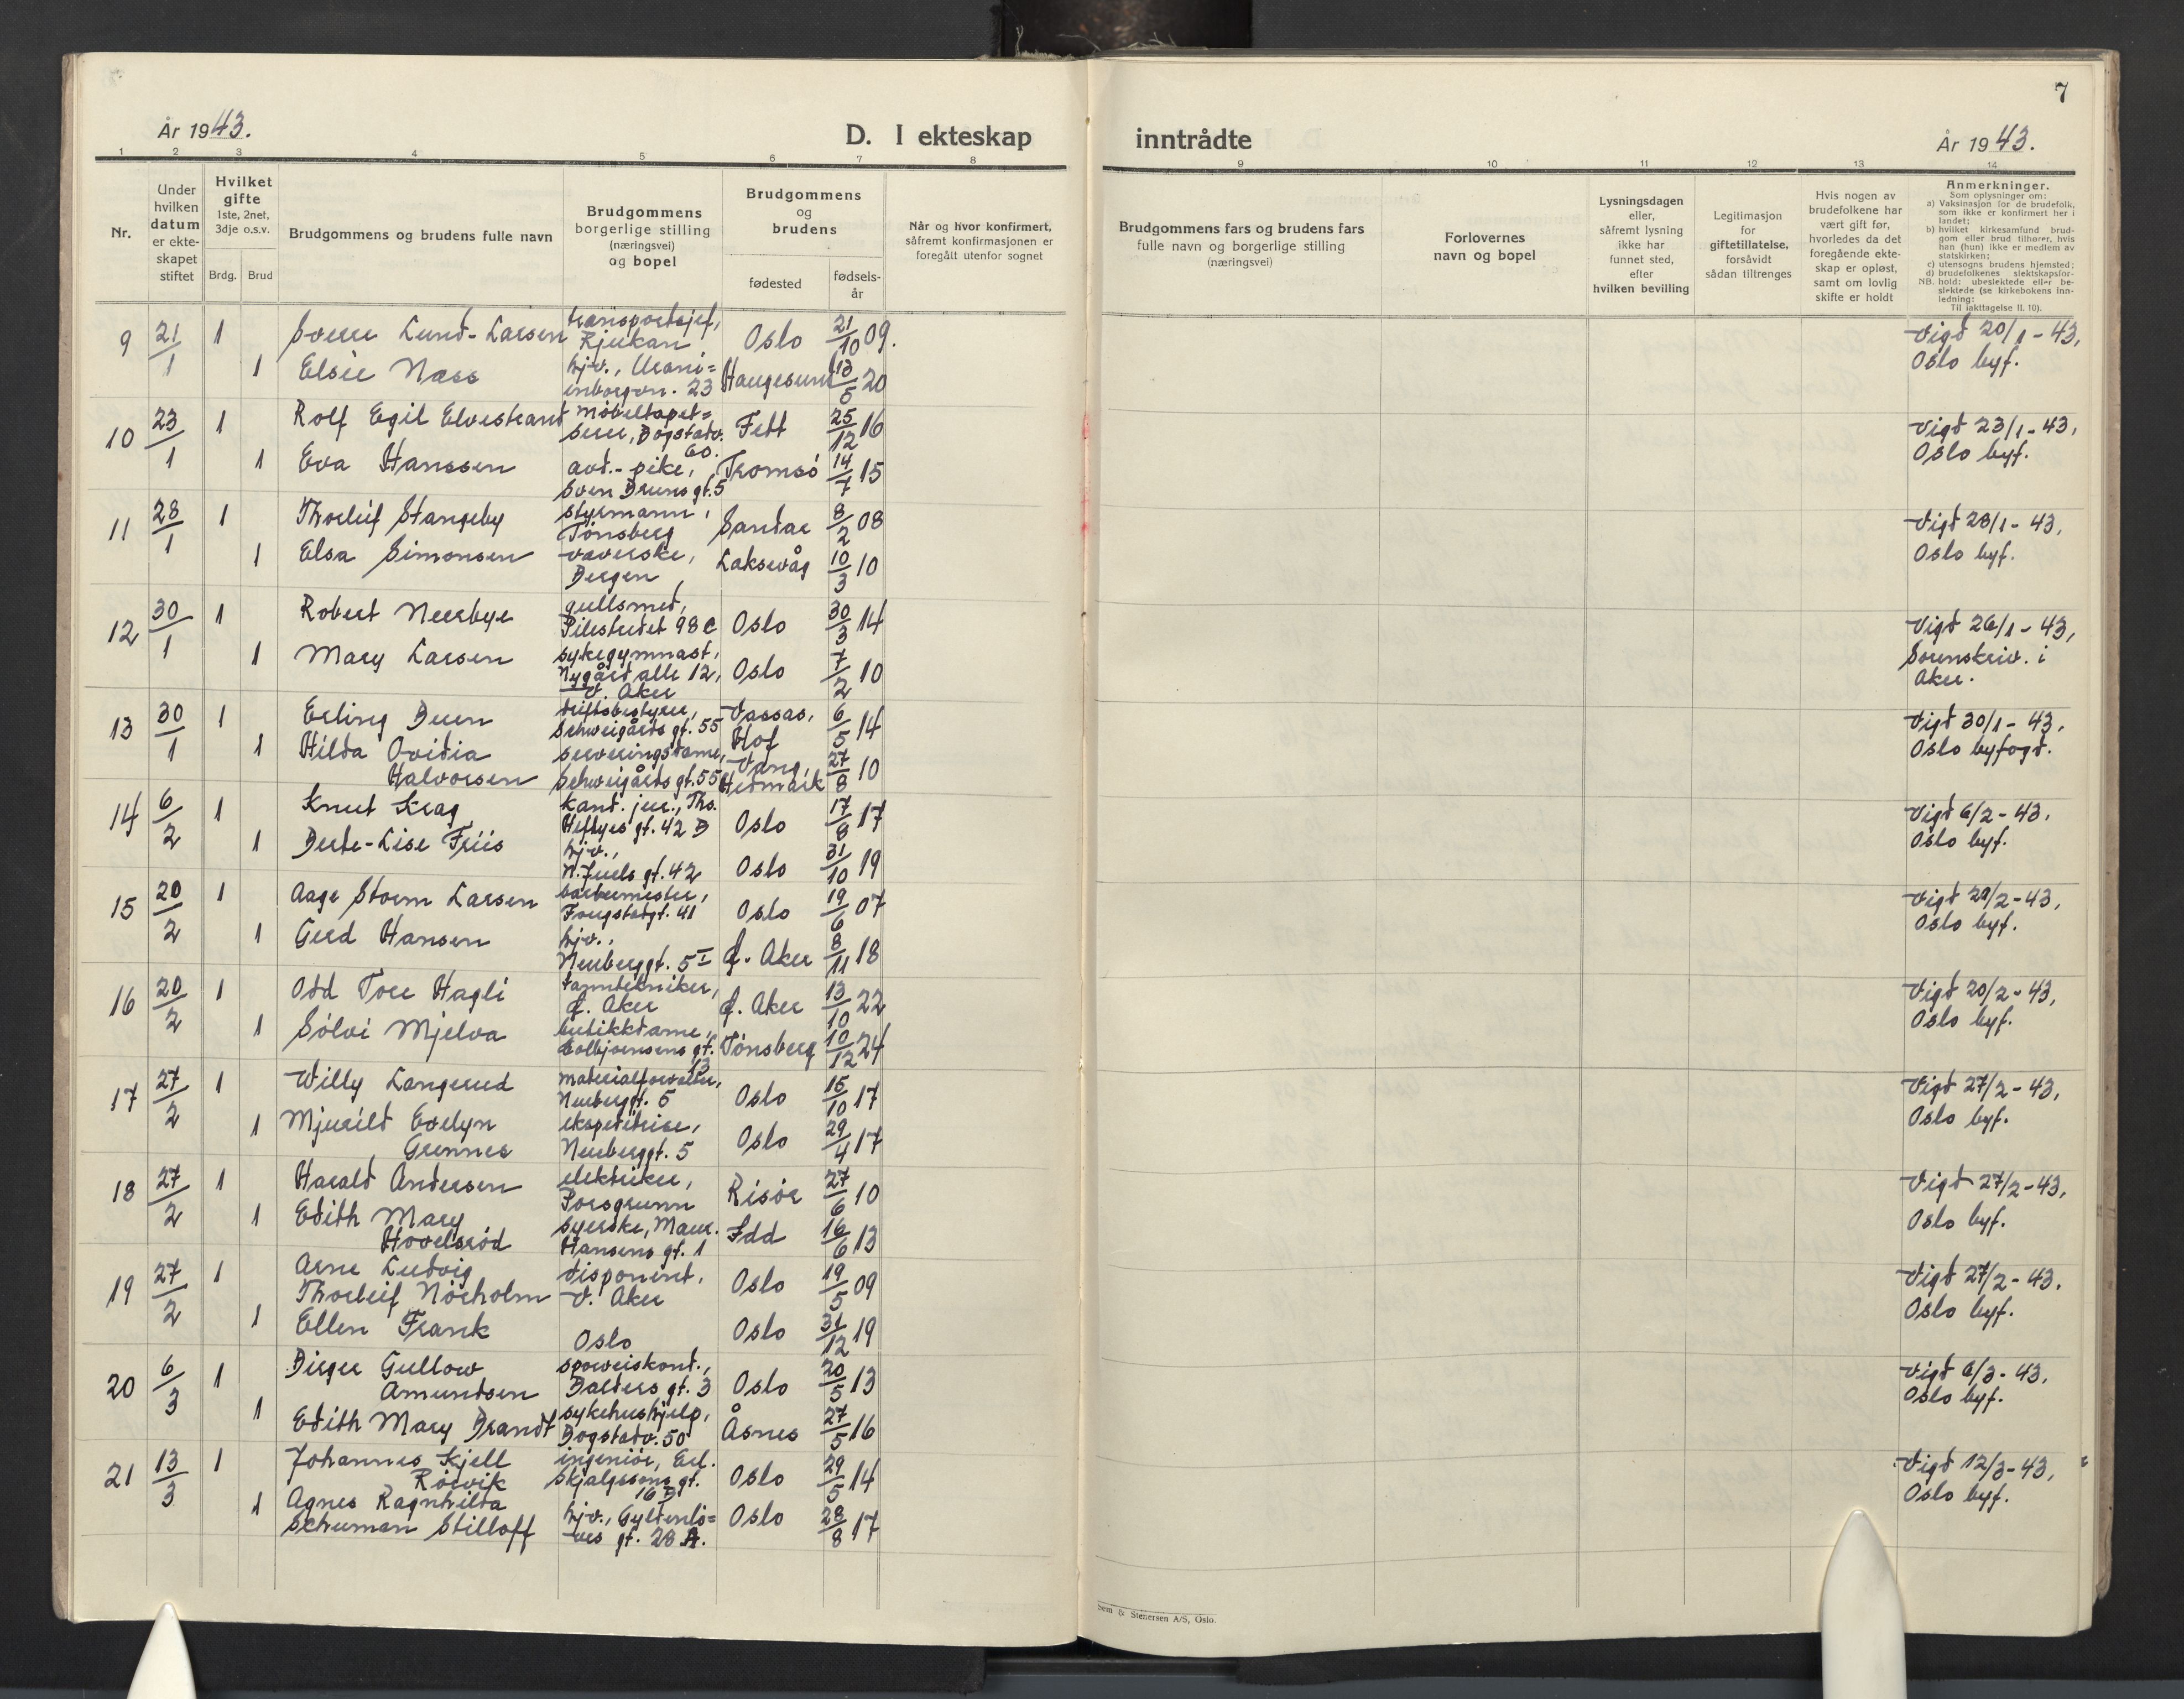 7
År 1943.
D. I ekteskap inntrådte
År 1943.
1 2 3 4 5 6 7 8 9 10 11 12 13 14
Nr.
Under
hvilken
datum
er ekte-
skapet
stiftet
Hvilket
gifte
1ste, 2net,
3dje o.s.v.
Brdg. Brud
Brudgommens og brudens fulle navn
Brudgommens
borgerlige stilling
(næringsvei)
og bopel
Brudgommens
og
brudens
fødested
fødsels-
år
Når og hvor konfirmert,
såfremt konfirmasjonen er
foregått utenfor sognet
Brudgommens fars og brudens fars
fulle navn og borgerlige stilling
(næringsvei)
Forlovernes
navn og bopel
Lysningsdagen
eller,
såfremt lysning
ikke har
funnet sted,
efter
hvilken bevilling
Legitimasjon
for
giftetillatelse,
forsåvidt
sådan tiltrenges
Hvis nogen av
brudefolkene har
vært gift før,
hvorledes da det
foregående ekte-
skap er opløst,
samt om lovlig
skifte er holdt
Anmerkninger.
Som oplysninger om:
a) Vaksinasjon for de brudefolk,
som ikke er konfirmert her i
landet;
b) hvilket kirkesamfund brud-
gom eller brud tilhører, hvis
han (hun) ikke er medlem av
statskirken;
c) utensogns brudens hjemsted;
d) brudefolkenes slektskapsfor-
NB. hold: ubeslektede eller be-
slektede (se kirkebokens inn-
ledning:
Til iakttagelse II. 10).
9 21/1 1 Sverre Lund-Larsen transportsjef, Rjukan Oslo 21/10 09. Vigd 20/1-43, Oslo byf.
1 Elsie Næss hjv., Urani=enborgvn. 23 Haugesund 13/5 20
10 23/1 1 Rolf Egil Elvestrand Møbeltapet=serer, Bogstadv. 60. Fett 25/12 16 Vigd 23/1-43, Oslo byf.
1 Eva Hanssen avd.-pike, Sven Bruns gt. 5 Tromsø 14/7 15
11 28/1 1 Thorleif Stangeby styrmann, Tønsberg Sandar 8/2 08 Vigd 28/1-43, Oslo byf.
1 Elsa Simonsen væverske, Bergen Laksevåg 10/3 10
12 30/1 1 Robert Neerbye gullsmed, Pilestredet 98 c Oslo 30/3 14 Vigd 26/1-43, Sorenskriv. i Aker.
1 Mary Larsen sykegymnast, Nygård alle 12, V. Aker Oslo 7/2 10
13 30/1 1 Erling Bruun driftsbestyrer, Schweigårds gt. 55 Vassås, Hof 6/5 14 Vigd 30/1-43, Oslo byfogd.
1 Hilda Ovidia Halvorsen serveringsdame, Schweigårds gt. 55 Vang, Hedmark 27/8 10
14 6/2 1 Knut Krag kand. jur., Ths. Heftyes gt. 42 B Oslo 17/8 17 Vigd 6/2-43, Oslo byf.
1 Berte-Lise Friis hjv., N. Juels gt. 42 Oslo 31/10 19
15 20/2 1 Aage Storm Larsen barbermester, Frugstadgt. 41 Oslo 19/6 07 Vigd 20/2-43, Oslo byf.
1 Gerd Hansen hjv., Neuberggt. 5 I Ø. Aker 8/11 18
16 20/2 1 Odd Tore Hagli tanntekniker, Ø. Aker Ø. Aker 13/10 22 Vigd 20/2-43, Oslo byf.
1 Sølvi Mjelva butikkdame, Colbjørnsens gt. 13 Tønsberg 10/12 24
17 27/2 1 Willy Langerud materialforvalter, Neuberggt. 5 Oslo 15/10 17 Vigd 27/2-43, Oslo byf.
1 Mjurild Evelyn Grønnes ekspeditrise, Neuberggt. 5 Oslo 29/4 17
18 27/2 1 Harald Andersen elektriker, Porsgrunn Risør 27/6 10 Vigd 27/2-43, Oslo byf.
1 Edith Mary Hovelsrød syerske, Maur. Hansens gt. 1 Idd 16/6 13
19 27/2 1 Arne Ludvig Thorleif Nørholm disponent, V. Aker Oslo 19/5 09 Vigd 27/2-43, Oslo byf.
1 Ellen Frank Oslo Oslo 31/12 19
20 6/3 1 Birger Gullow Amundsen sporveiskond., Balders gt. 3 Oslo 20/5 13 Vigd 6/3-43, Oslo byf.
1 Edith Mary Brandt sykehushjelp, Bogstadv. 50 Åsnes 27/5 16
21 13/3 1 Johannes Kjell Rørvik ingeniør, Erl. Skjalgssons gt. 16 B Oslo 29/5 14 Vigd 12/3-43, Oslo byf.
1 Agnes Ragnhilda Schuman Stilloff hjv., Gyldenlø=ves gt. 28 A. Oslo 28/8 17
& Stenersen A/S, Oslo.